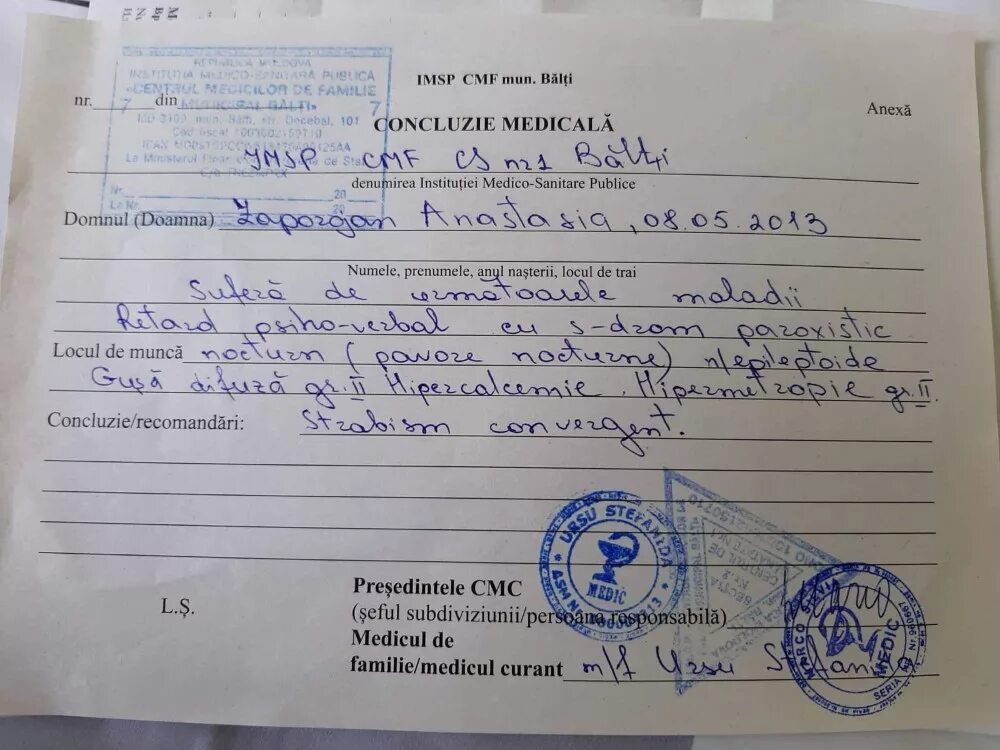 IMSP CMF mun. Bălți
REPUBLICA MOLDOVA
INSTITUȚIA MEDICO-SANITARĂ PUBLICĂ
«CENTRUL MEDICILOR DE FAMILIE
MUNICIPAL BĂLȚI»
MD 3100 mun. Bălți, str. Decebal, 101
Cod fiscal
La Ministerul de Stat
Nr. 20
La Nr. 20
nr. 7 din 7
Anexă
CONCLUZIE MEDICALĂ
IMSP CMF CS nr1 Bălți
denumirea Instituției Medico-Sanitare Publice
Domnul (Doamna) Zaporojan Anastasia, 08.05.2013
Numele, prenumele, anul nașterii, locul de trai
Suferă de următoarele maladii
Retard psiho-verbal cu s-drom paroxistic
Locul de muncă nocturn (pavore nocturne) n/epileptoide
Gușă difuză gr. II Hipercalcemie. Hipermetropie gr. II.
Concluzie/recomandări: Strabism convergent.
URSU STEFANIDA
MEDIC
L.Ș.
Președintele CMC
(șeful subdiviziunii/persoana responsabilă)
Medicul de
familie/medicul curant m/f Ursu Stefanida
MEDIC
SERIA